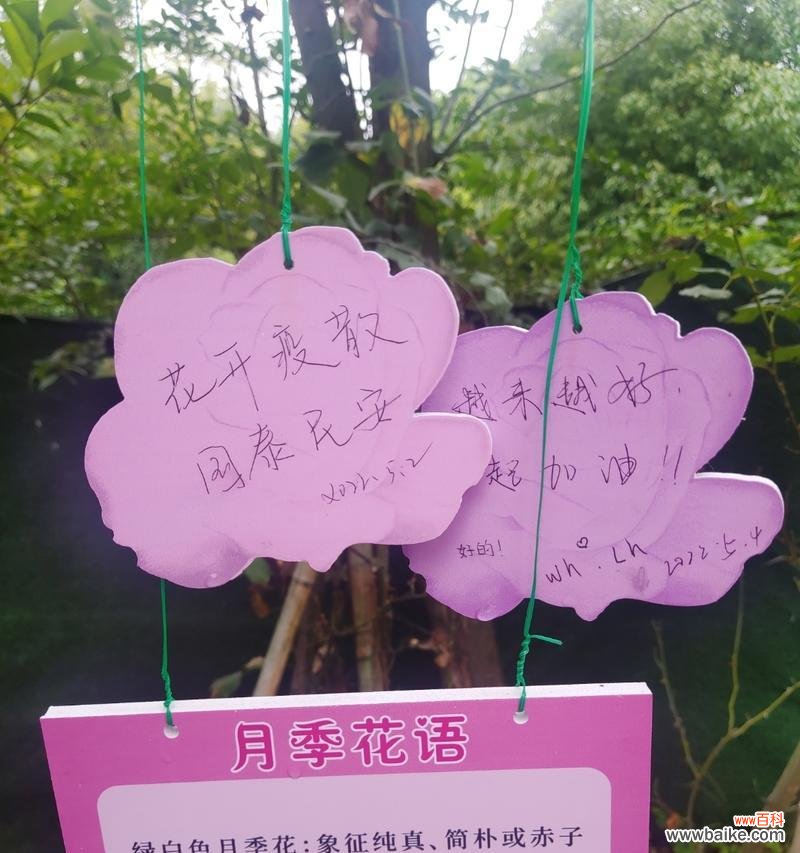 花开疫散
国泰民安
2022.5.2
越来越好.
起加油!!
好的!
Wh.Lh
2022.5.4
月季花语
绿白色月季花:象征纯真、简朴或赤子
www百科
www.baike.com